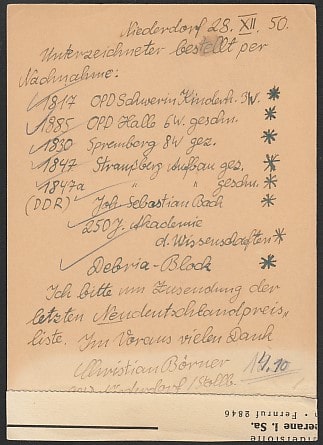 Niederdorf 28. XII. 50.
Unterzeichneter bestellt per
Nachnahme:
1817 OPD Schwerin Kinderh. 3W. *
1885 OPD Halle 6W. geschn. *
1830 Spremberg 8W gez. *
1847 Straußberg Aufbau gez. *
1847a " " geschn. *
(DDR) Joh. Sebastian Bach *
250 J. Akademie
d. Wissenschaften *
Debria-Block *
Ich bitte um Zusendung der
letzten Neudeutschlandpreis-
liste. Im Voraus vielen Dank
Christian Börner
Niederdorf
14.10
• Fernruf 2846
erane i. Sa.